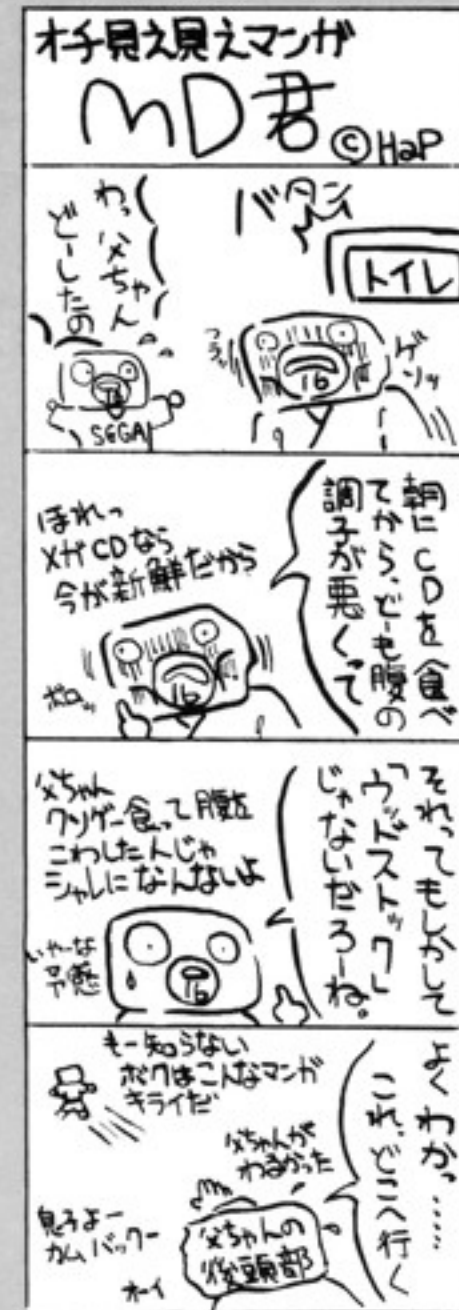 オチ見え見えマンガ
MD君
©HaP
バタン
トイレ
ゲソッ
フラッ
16
わっ父ちゃん
どーしたの
16
SEGA
朝にCDを食べ
てから、どーも腹の
調子が悪くって
ほれっ
メガCDなら
今が新鮮だから
ボロッ
16
それってもしかして
「ウッドストック」
じゃないだろーね。
父ちゃん
クソゲー食って腹を
こわしたんじゃ
シャレになんないよ
いやーな
予感
16
よくわかっ……
これ、どこへ行く
父ちゃんが
わるかった
もー知らない
ボクはこんなマンガ
キライだ
父ちゃんの
後頭部
息子よー
カムバックー
オーイ